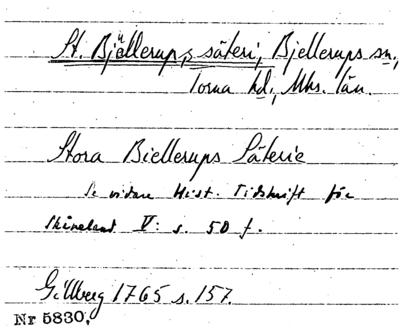 St. Bjällerups, säteri, Bjellerups sn,
Torna hd, Mhs. län.
Stora Biellerups Säterie
Se vidare Hist. Tidskrift för
Skåneland V: s. 50 f.
Gillberg 1765 s. 157.
Nr 5830,